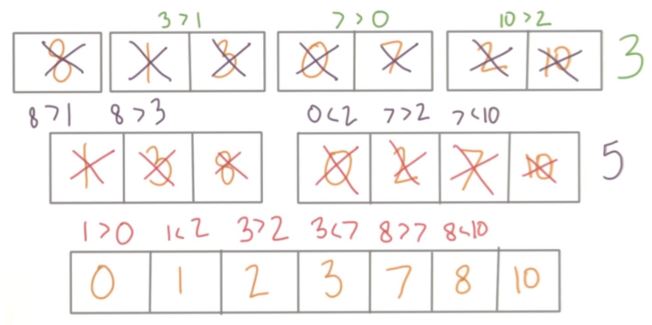 3>1 7>0 10>2
8 1 3 0 7 2 10 3
8>1 8>3 0<2 7>2 7<10
1 3 8 0 2 7 10 5
1>0 1<2 3>2 3<7 8>7 8<10
0 1 2 3 7 8 10